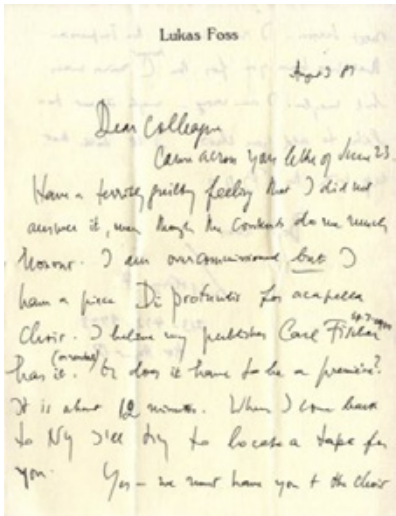 Lukas Foss
Aug 3 89
Dear Colleague
Came across your letter of June 23.
Have a terribly guilty feeling that I did not
answer it, even though the contents do me much
honour. I am overcommissioned but I
have a piece De profundis for acapella
choir. I believe my publisher Carl Fischer
has it. Or does it have to be a première?
It is about 12 minutes. When I come back
to NY I'll try to locate a tape for
you. Yes – we must have you + the choir